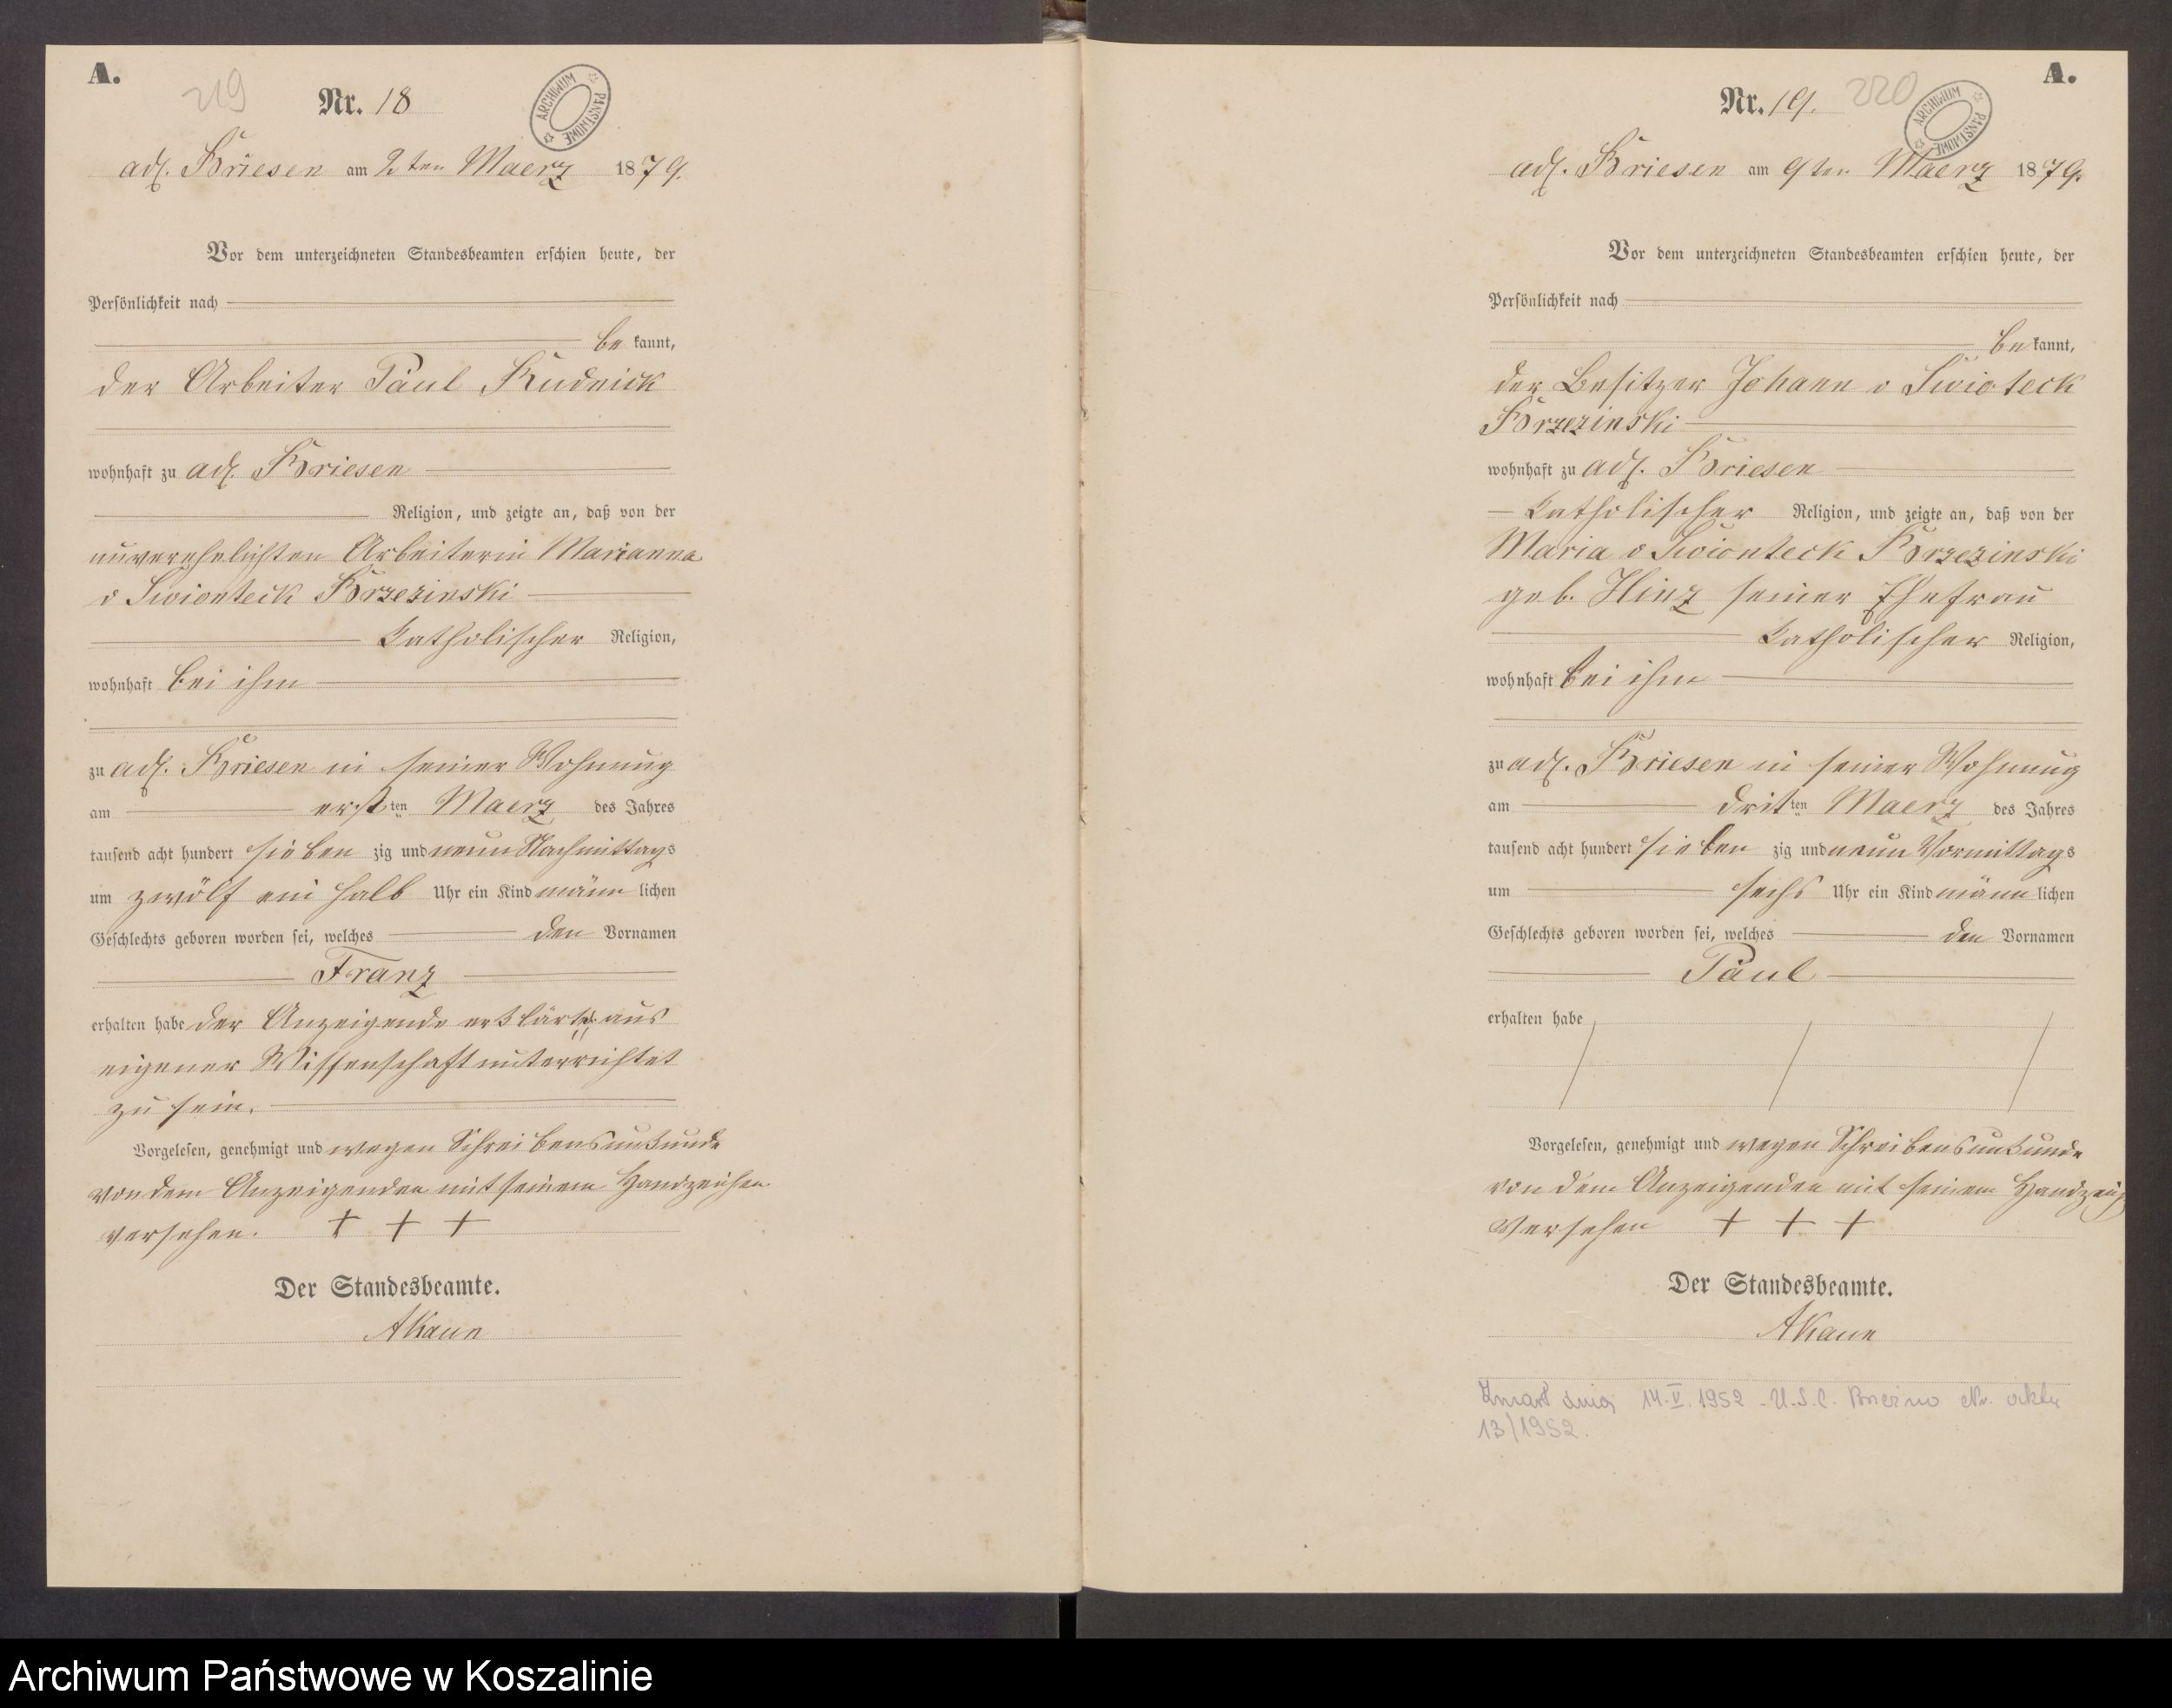 A.
219
Nr. 18
ARCHIWUM PAŃSTWOWE
adl. Briesen am 2ten Maerz 1879.
Vor dem unterzeichneten Standesbeamten erschien heute, der
Persönlichkeit nach
be kannt,
der Arbeiter Paul Rudnick
wohnhaft zu adl. Briesen
Religion, und zeigte an, daß von der
unverehelichten Arbeiterin Marianna
v Swionteck Brzezinski
katholischer Religion,
wohnhaft bei ihm
zu adl. Briesen in seiner Wohnung
am ersten Maerz des Jahres
tausend acht hundert sieben zig und neun Nachmittags
um zwölf ein halb Uhr ein Kind männ lichen
Geschlechts geboren worden sei, welches den Vornamen
Franz
erhalten habe der Anzeigende erklärte aus
eigener Wissenschaft unterrichtet
zu sein.
Vorgelesen, genehmigt und wegen Schreibensunkunde
von dem Anzeigenden mit seinem Handzeichen
versehen. + + +
Der Standesbeamte.
A Kaun
A.
220
Nr. 19.
ARCHIWUM PAŃSTWOWE
adl. Briesen am 9ten Maerz 1879.
Vor dem unterzeichneten Standesbeamten erschien heute, der
Persönlichkeit nach
be kannt,
der Besitzer Johann v Swioteck
Brzezinski
wohnhaft zu adl. Briesen
katholischer Religion, und zeigte an, daß von der
Maria v Swionteck Brzezinski
geb. Hinz seiner Ehefrau
katholischer Religion,
wohnhaft bei ihm
zu adl. Briesen in seiner Wohnung
am dritten Maerz des Jahres
tausend acht hundert sieben zig und neun Vormittags
um sechs Uhr ein Kind männ lichen
Geschlechts geboren worden sei, welches den Vornamen
Paul
erhalten habe
Vorgelesen, genehmigt und wegen Schreibensunkunde
von dem Anzeigenden mit seinem Handzeich
versehen + + +
Der Standesbeamte.
A Kaun
Zmarł dnia 14.V.1952 - U.S.C. Brzeźno Nr. aktu
13/1952.
Archiwum Państwowe w Koszalinie